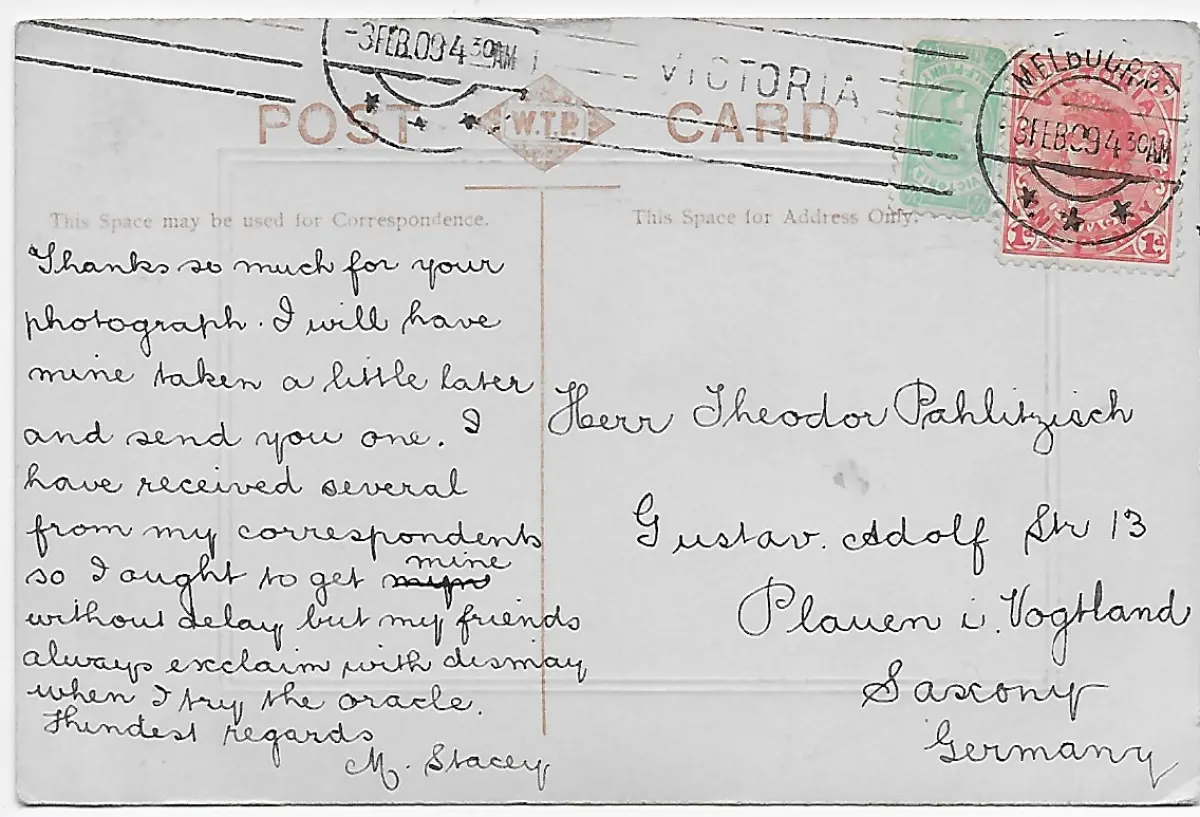 -3FEB.09 4 30AM
VICTORIA
MELBOURNE
3FEB09 4 30AM
POST W.T.P. CARD
VICTORIA
VICTORIA
ONE PENNY
1d 1d
This Space may be used for Correspondence.
This Space for Address Only.
Thanks so much for your
photograph. I will have
mine taken a little later
and send you one. I
have received several
from my correspondents
so I ought to get mine
without delay but my friends
always exclaim with dismay
when I try the oracle.
Kindest regards
M. Stacey
Herr Theodor Pahlitzisch
Gustav. Adolf Str 13
Plauen i. Vogtland
Saxony
Germany